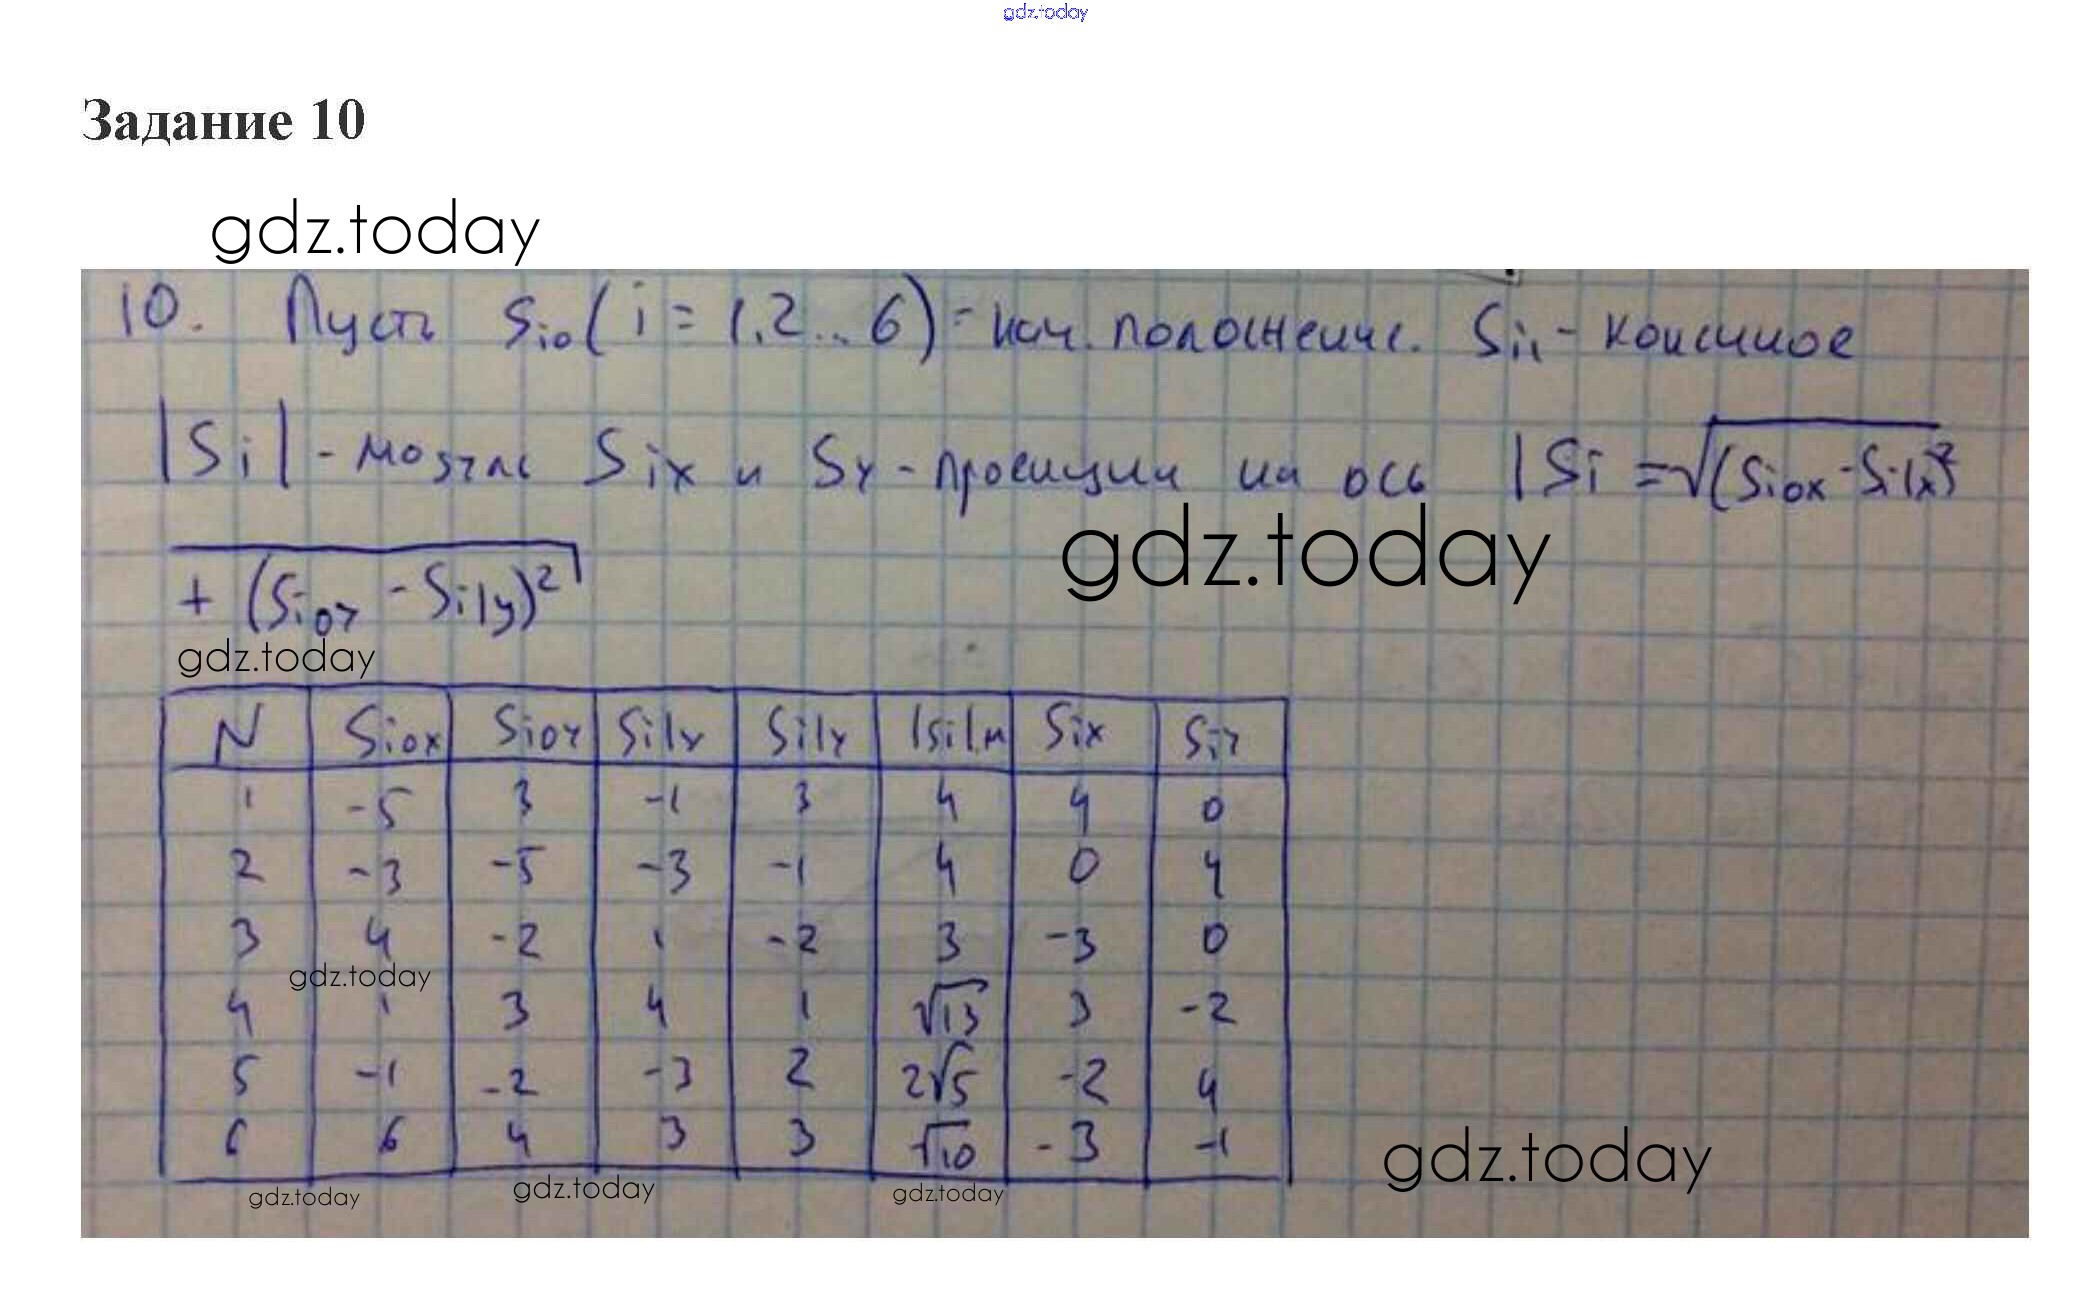 gdz.today
Задание 10
gdz.today
10. Пусть Sio (i = 1,2... 6) - нач. положение. Si1 - конечное
|Si| - модуль Six и Sy - проекции на ось |Si = √(Siox - Si1x)²
gdz.today
+ (Sioy - Si1y)²
gdz.today
N Siox Sioy Si1x Si1y |Si|м Six Siy
1 -5 3 -1 3 4 4 0
2 -3 -5 -3 -1 4 0 4
3 4 -2 1 -2 3 -3 0
gdz.today
4 1 3 4 1 √13 3 -2
5 -1 -2 -3 2 2√5 -2 4
6 6 4 3 3 √10 -3 -1
gdz.today
gdz.today gdz.today gdz.today